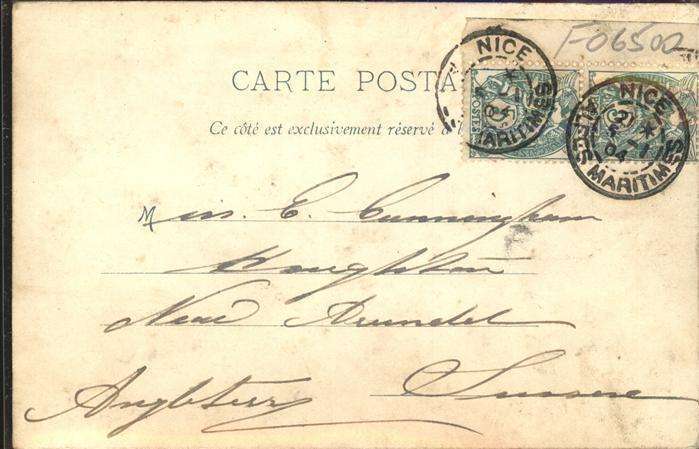 F06500
NICE
ALPES MARITIMES
NICE
ALPES MARITIMES
04
CARTE POSTA
Ce côté est exclusivement réservé à l
Miss. E. Cunningham
Houghton
Near Arundel
Angleterre Sussex